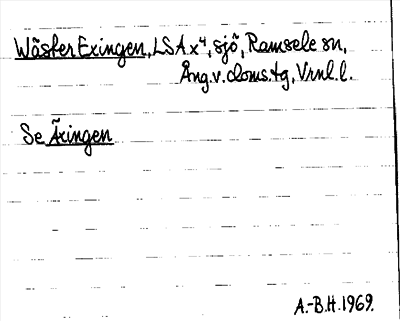 Wäster Exingen, LSA x⁴, sjö, Ramsele sn,
Ång.v.doms.tg, Vrnl.l.
Se Äxingen
A.-B.H. 1969.